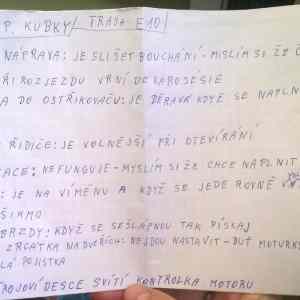 P. KUBKY / TRASA E10/
NÁPRAVA: JE SLIŠET BOUCHÁNÍ - MISLÍM SI ŽE
ŘI ROZJEZDU VRNÍ DEKAROSÉSIE
A DO OSTŘIKOVAČU: JE DERAVÁ KDYŽ SE NAPLN
ŘIDIČE: JE VOLNĚJŠÍ PŘI OTEVÍRÁNÍ
ACE: NEFUNGUJE - MYSLÍM SI ŽE CHCE NAPLNIT
: JE NA VÍMĚNU A KDYŽ SE JEDE ROVNĚ V
ŠIKMO
BRZDY: KDYŽ SE SEŠLÁPNOU TAK PÍSKAJ
ZRCATKA NA DVEŘÍCH: NEJDOU NASTAVIT - BUŤ MOTURK
LÁ POJISTKA
TROJOVÍ DESCE SVÍTÍ KONTROLKA MOTORU